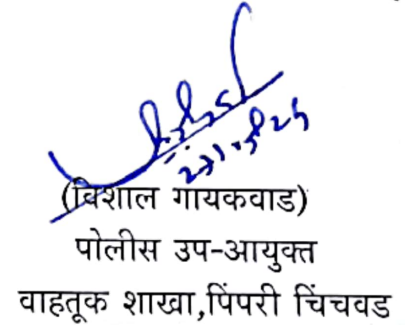 (विशाल गायकवाड)
पोलीस उप-आयुक्त
वाहतूक शाखा,पिंपरी चिंचवड